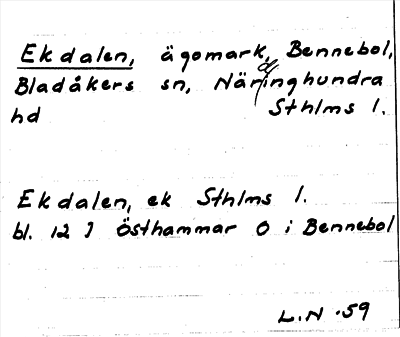 Ekdalen, ägomark, Bennebol,
Bladåkers sn, Näringhundra
hd Sthlms l.
Ekdalen, ek Sthlms l.
bl. 12 J Östhammar O i Bennebol
L.N -59